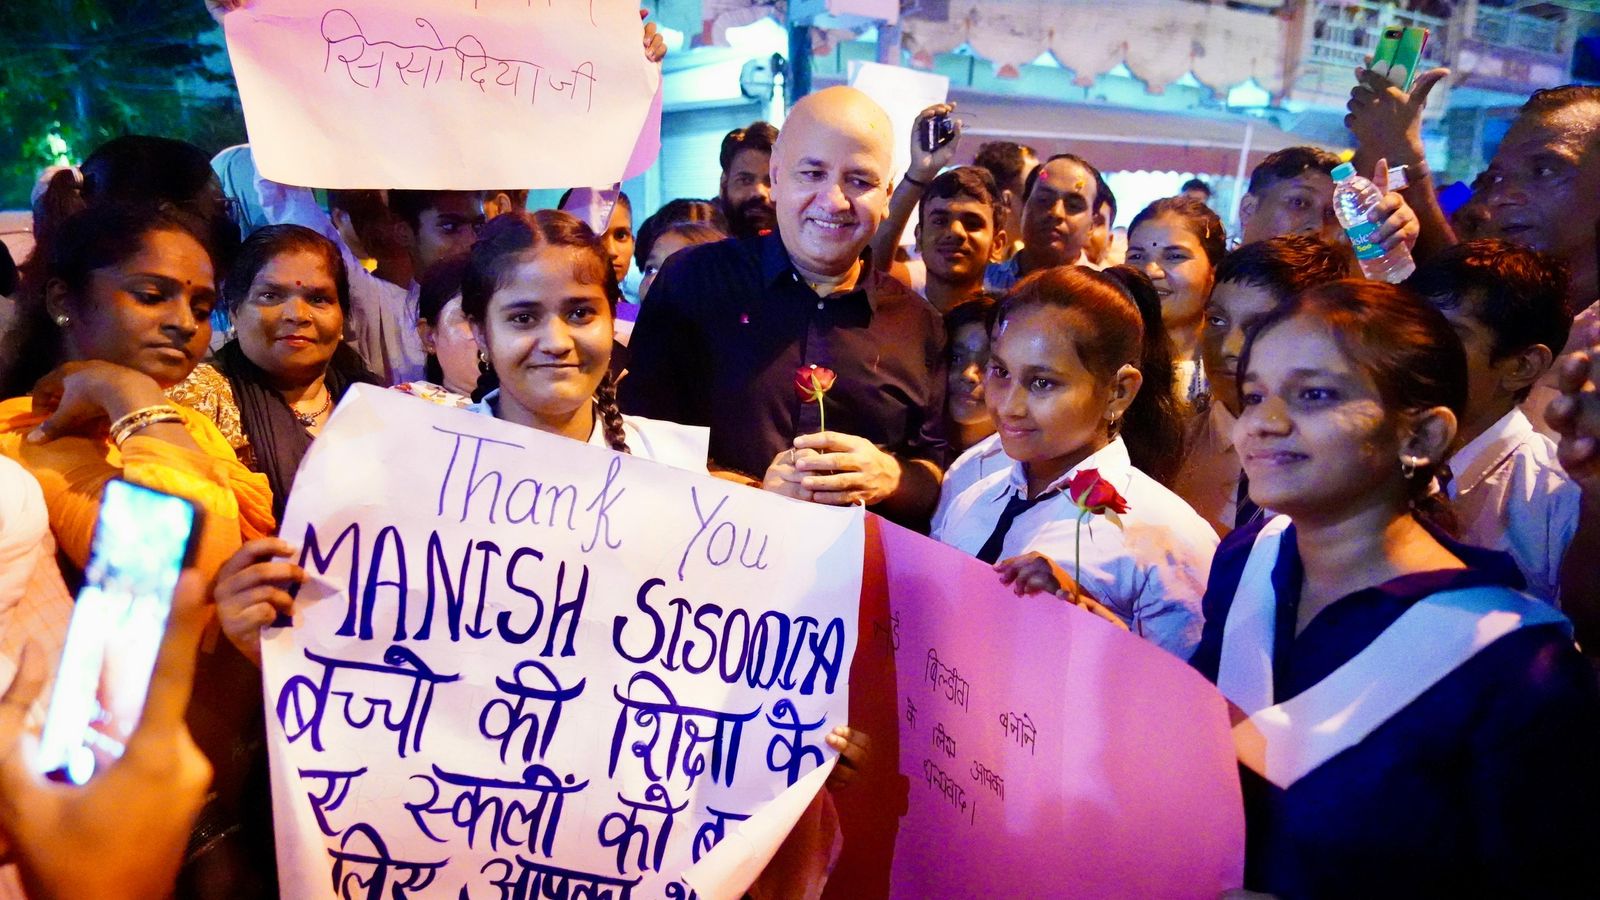 सिसोदिया जी
Thank You
MANISH SISODIA
बच्चो की शिक्षा के
ए स्कूलों को ब
लिए आपका
नई
बिल्डींग बनाने
के लिए आपका
धन्यवाद।